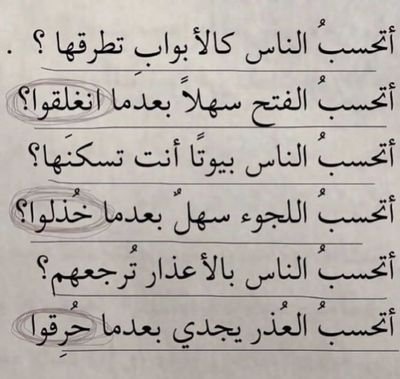 أتحسبُ الناس كالأبوابِ تطرقها ؟ .
أتحسبُ الفتح سهلاً بعدما انغلقوا؟
أتحسبُ الناس بيوتًا أنت تسكنَها؟
أتحسبُ اللجوء سهلٌ بعدما خُذلوا؟
أتحسبُ الناس بالأعذار تُرجعهم؟
أتحسبُ العُذر يجدي بعدما حُرِقوا